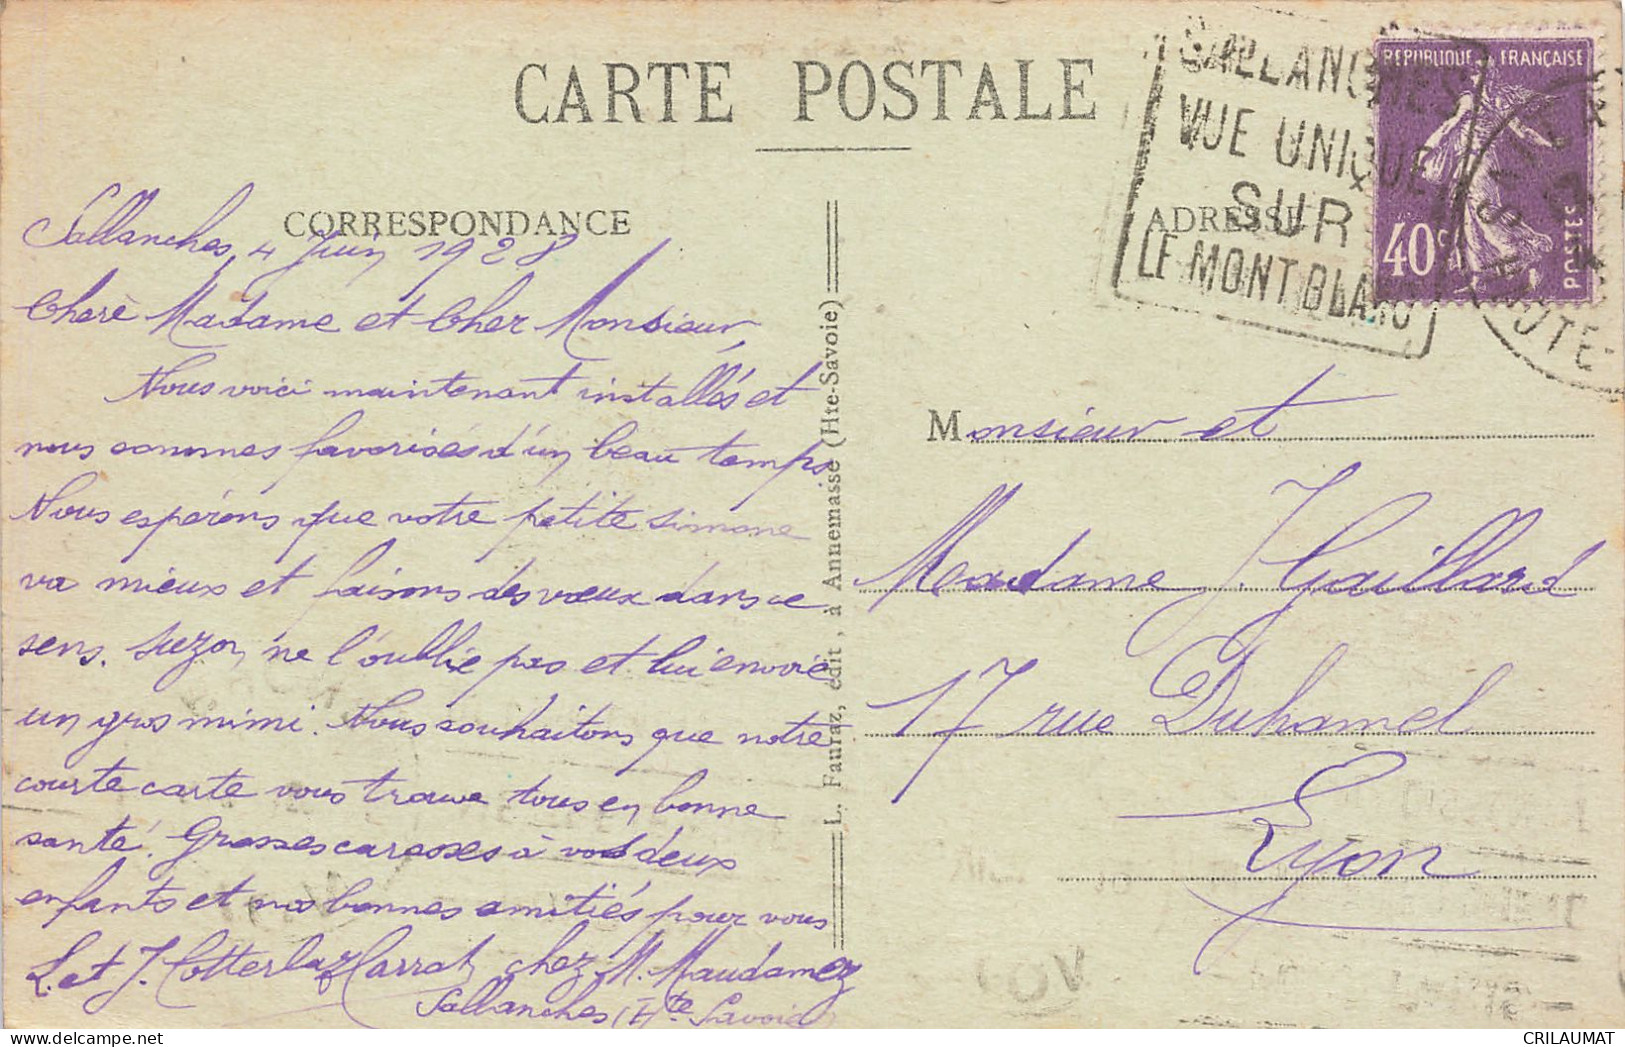 CARTE POSTALE
SALLANCHES
VUE UNIQUE
SUR
LE MONT BLANC
REPUBLIQUE FRANÇAISE
40c
POSTES
HAUTE-
CORRESPONDANCE
ADRESSE
Sallanches, 4 Juin 1928
Chère Madame et Cher Monsieur,
Nous voici maintenant installés et
nous sommes favorisés d'un beau temps.
Nous espérons que votre petite Simone
va mieux et faisons des vœux dans ce
sens. Suzon ne l'oublie pas et lui envoie
un gros mimi. Nous souhaitons que notre
courte carte vous trouve tous en bonne
santé. Grosses caresses à vos deux
enfants et nos bonnes amitiés pour vous
L. et J. Cotterlaz Carrat, chez M. Maudamez
Sallanches (Hte Savoie)
L. Fauraz, édit, à Annemasse (Hte-Savoie)
Monsieur et
Madame J. Gaillard
17 rue Duhamel
Lyon
delcampe.net
CRILAUMAT